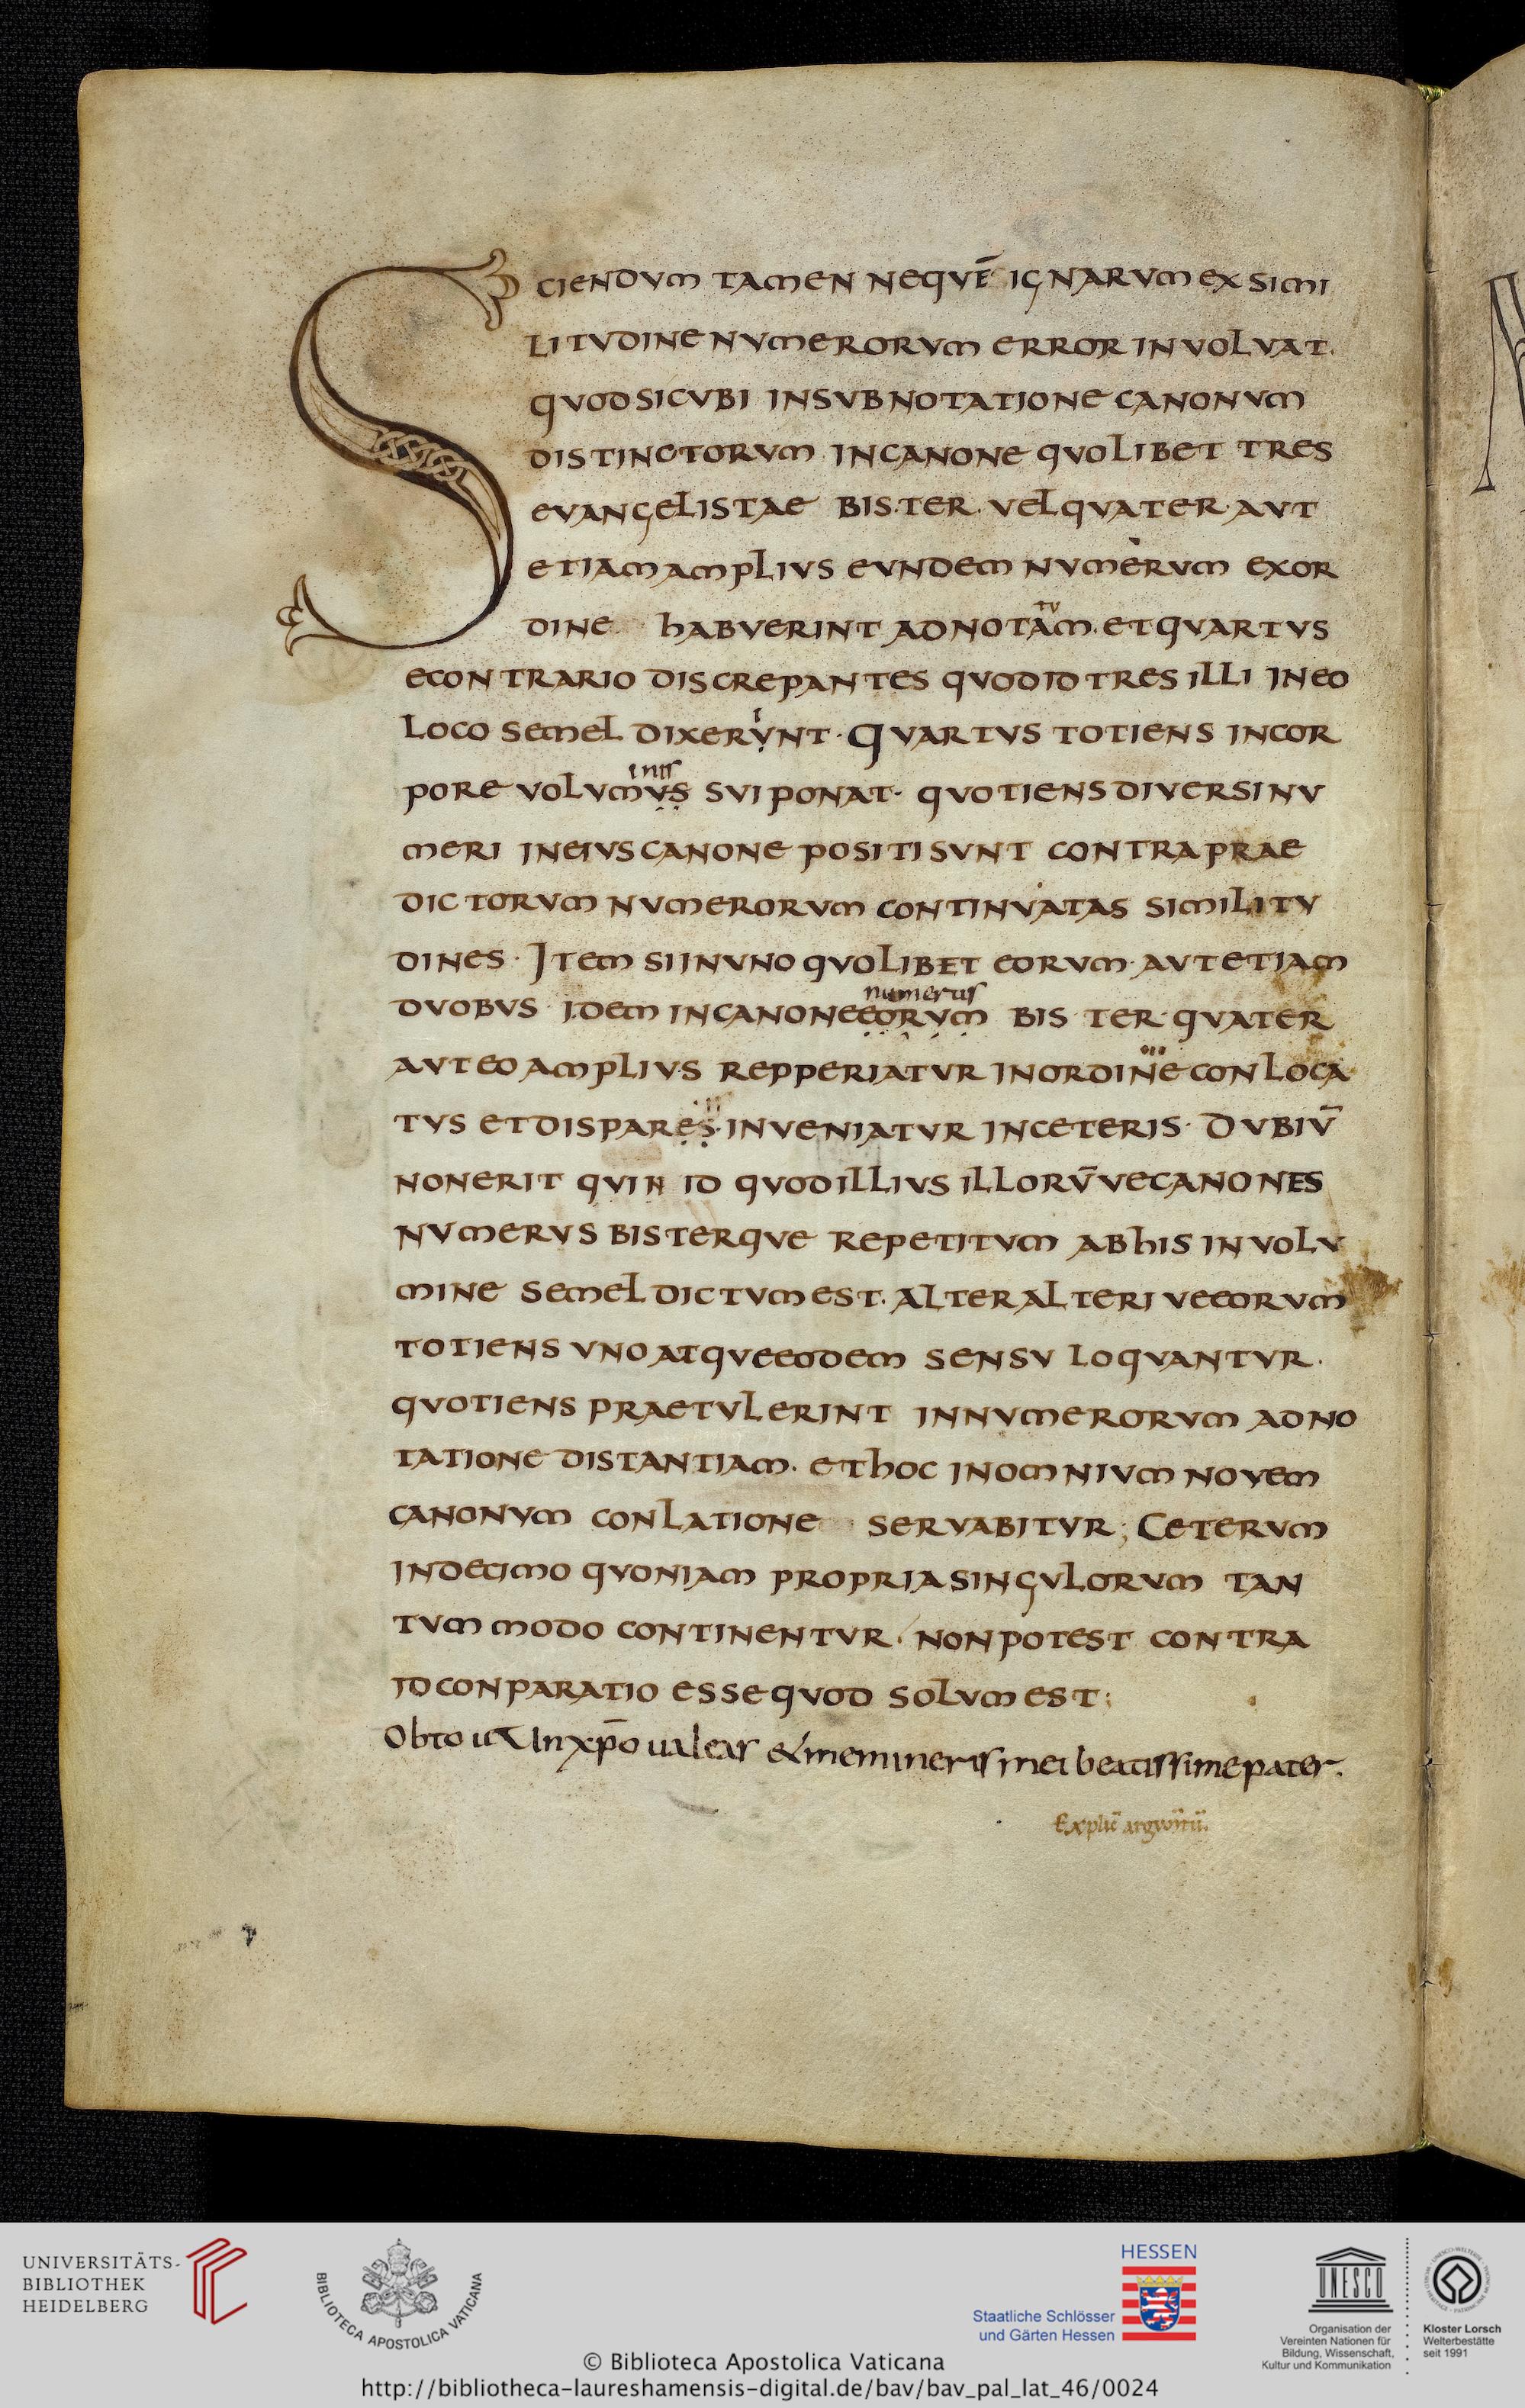 SCIENDUM TAMEN NEQUĒ IGNARUM EX SIMI
LITUDINE NUMERORUM ERROR INVOLVAT.
QUOD SICUBI IN SUBNOTATIONE CANONUM
DISTINCTORUM IN CANONE QUOLIBET TRES
EVANGELISTAE BIS·TER·VEL QUATER·AUT
ETIAM AMPLIUS EUNDEM NUMERUM EX OR
tu
DINE HABUERINT ADNOTAM·ET QUARTUS
E CONTRARIO DISCREPANTES QUOD ID TRES ILLI IN EO
i
LOCO SEMEL DIXERUNT·QUARTUS TOTIENS IN COR
inis
PORE VOLUMUS SUI PONAT·QUOTIENS DIVERSI NU
MERI IN EIUS CANONE POSITI SUNT CONTRA PRAE
DICTORUM NUMERORUM CONTINUATAS SIMILITU
DINES·ITEM SI IN UNO QUOLIBET EORUM·AUT ETIAM
numerus
DUOBUS IDEM IN CANONE EORUM BIS·TER·QUATER
AUT EO AMPLIUS REPPERIATUR IN ORDINE CONLOCA
TUS ET DISPARES·INVENIATUR IN CETERIS·DUBIŪ
NON ERIT QUIN ID QUOD ILLIUS ILLORŪVE CANONES
NUMERUS BIS TERQUE REPETITUM AB HIS IN VOLU
MINE SEMEL DICTUM EST·ALTER ALTERIVE EORUM
TOTIENS UNO ATQUE EODEM SENSU LOQUANTUR·
QUOTIENS PRAETULERINT IN NUMERORUM ADNO
TATIONE DISTANTIAM·ET HOC IN OMNIUM NOVEM
CANONUM CONLATIONE SERVABITUR; CETERUM
IN DECIMO QUONIAM PROPRIA SINGULORUM TAN
TUM MODO CONTINENTUR·NON POTEST CONTRA
ID CONPARATIO ESSE QUOD SOLUM EST;
Obto ut In xp̄o ualeas & memineris mei beatissime pater.
UNIVERSITÄTS-
BIBLIOTHEK
HEIDELBERG
BIBLIOTECA APOSTOLICA VATICANA
HESSEN
Staatliche Schlösser
und Gärten Hessen
UNESCO
Organisation der
Vereinten Nationen für
Bildung, Wissenschaft,
Kultur und Kommunikation
Kloster Lorsch
Welterbestätte
seit 1991
© Biblioteca Apostolica Vaticana
http://bibliotheca-laureshamensis-digital.de/bav/bav_pal_lat_46/0024